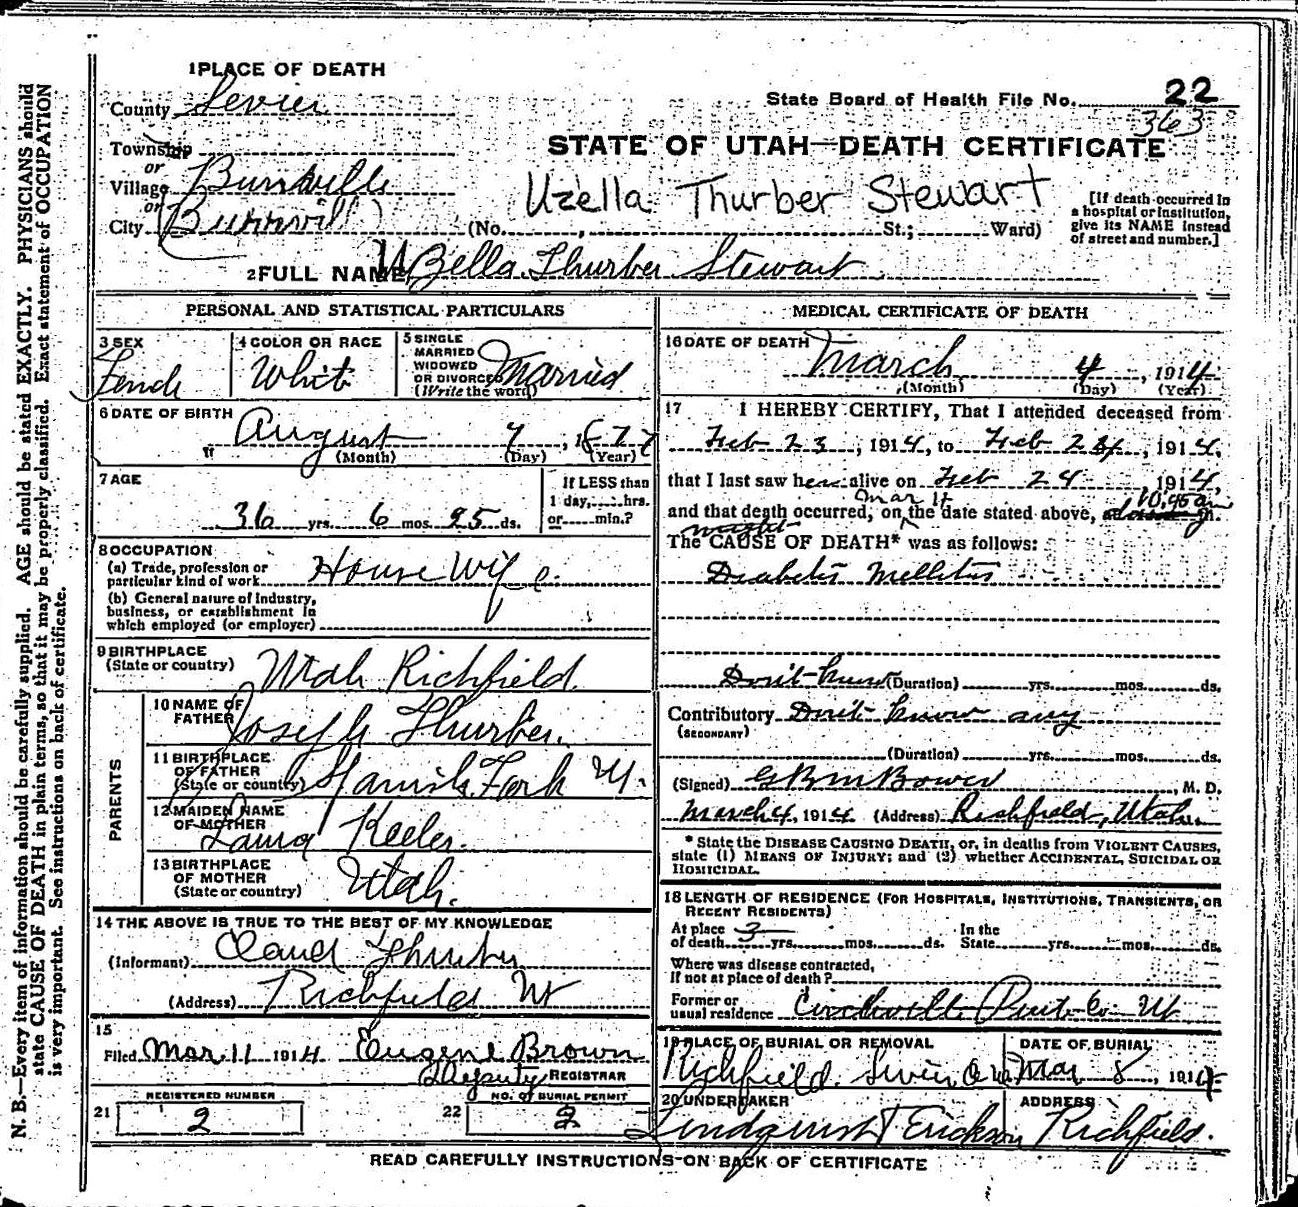 1 PLACE OF DEATH
County Sevier
State Board of Health File No. 22
363
Township
or
Village Burrville
or
City (Burrvill)
STATE OF UTAH—DEATH CERTIFICATE
Uzella Thurber Stewart
(No. , St.; Ward)
[If death occurred in
a hospital or institution,
give its NAME instead
of street and number.]
2 FULL NAME Uzella Thurber Stewart
PERSONAL AND STATISTICAL PARTICULARS
3 SEX
Female
4 COLOR OR RACE
White
5 SINGLE
MARRIED
WIDOWED
OR DIVORCED
(Write the word)
Married
6 DATE OF BIRTH
August 7, 1877
(Month) (Day) (Year)
7 AGE
36 yrs. 6 mos. 25 ds.
If LESS than
1 day, hrs.
or min.?
8 OCCUPATION
(a) Trade, profession or
particular kind of work House Wife
(b) General nature of industry,
business, or establishment in
which employed (or employer)
9 BIRTHPLACE
(State or country) Utah Richfield
PARENTS
10 NAME OF
FATHER Joseph Thurber.
11 BIRTHPLACE
OF FATHER
(State or country) Spanish Fork U.
12 MAIDEN NAME
OF MOTHER Laura Keeler.
13 BIRTHPLACE
OF MOTHER
(State or country) Utah.
14 THE ABOVE IS TRUE TO THE BEST OF MY KNOWLEDGE
(Informant) Claud Thurber
(Address) Richfield Ut
15
Filed Mar. 11 1914 Eugene Brown
Deputy REGISTRAR
REGISTERED NUMBER
21 2
NO. OF BURIAL PERMIT
22 2
MEDICAL CERTIFICATE OF DEATH
16 DATE OF DEATH
March 4, 1914
(Month) (Day) (Year)
17 I HEREBY CERTIFY, That I attended deceased from
Feb 23, 1914, to Feb 24, 1914,
that I last saw her alive on Feb 24, 1914,
Mar 4 10.45 a
and that death occurred, on the date stated above, m.
The CAUSE OF DEATH* was as follows:
Diabetes Mellitus
Don't know (Duration) yrs. mos. ds.
Contributory Don't know any
(SECONDARY)
(Duration) yrs. mos. ds.
(Signed) , M. D.
March 4, 1914 (Address) Richfield, Utah.
* State the DISEASE CAUSING DEATH, or, in deaths from VIOLENT CAUSES,
state (1) MEANS OF INJURY; and (2) whether ACCIDENTAL, SUICIDAL OR
HOMICIDAL.
18 LENGTH OF RESIDENCE (FOR HOSPITALS, INSTITUTIONS, TRANSIENTS, OR
RECENT RESIDENTS)
At place
of death 3 yrs. mos. ds.
In the
State yrs. mos. ds.
Where was disease contracted,
If not at place of death?
Former or
usual residence Circleville Piute Co. Ut
19 PLACE OF BURIAL OR REMOVAL
Richfield. Sevier
DATE OF BURIAL
Mar 8, 1914
20 UNDERTAKER
Lindquist & Erickson
ADDRESS
Richfield.
READ CAREFULLY INSTRUCTIONS ON BACK OF CERTIFICATE
N. B.—Every item of information should be carefully supplied. AGE should be stated EXACTLY. PHYSICIANS should
state CAUSE OF DEATH in plain terms, so that it may be properly classified. Exact statement of OCCUPATION
is very important. See instructions on back of certificate.